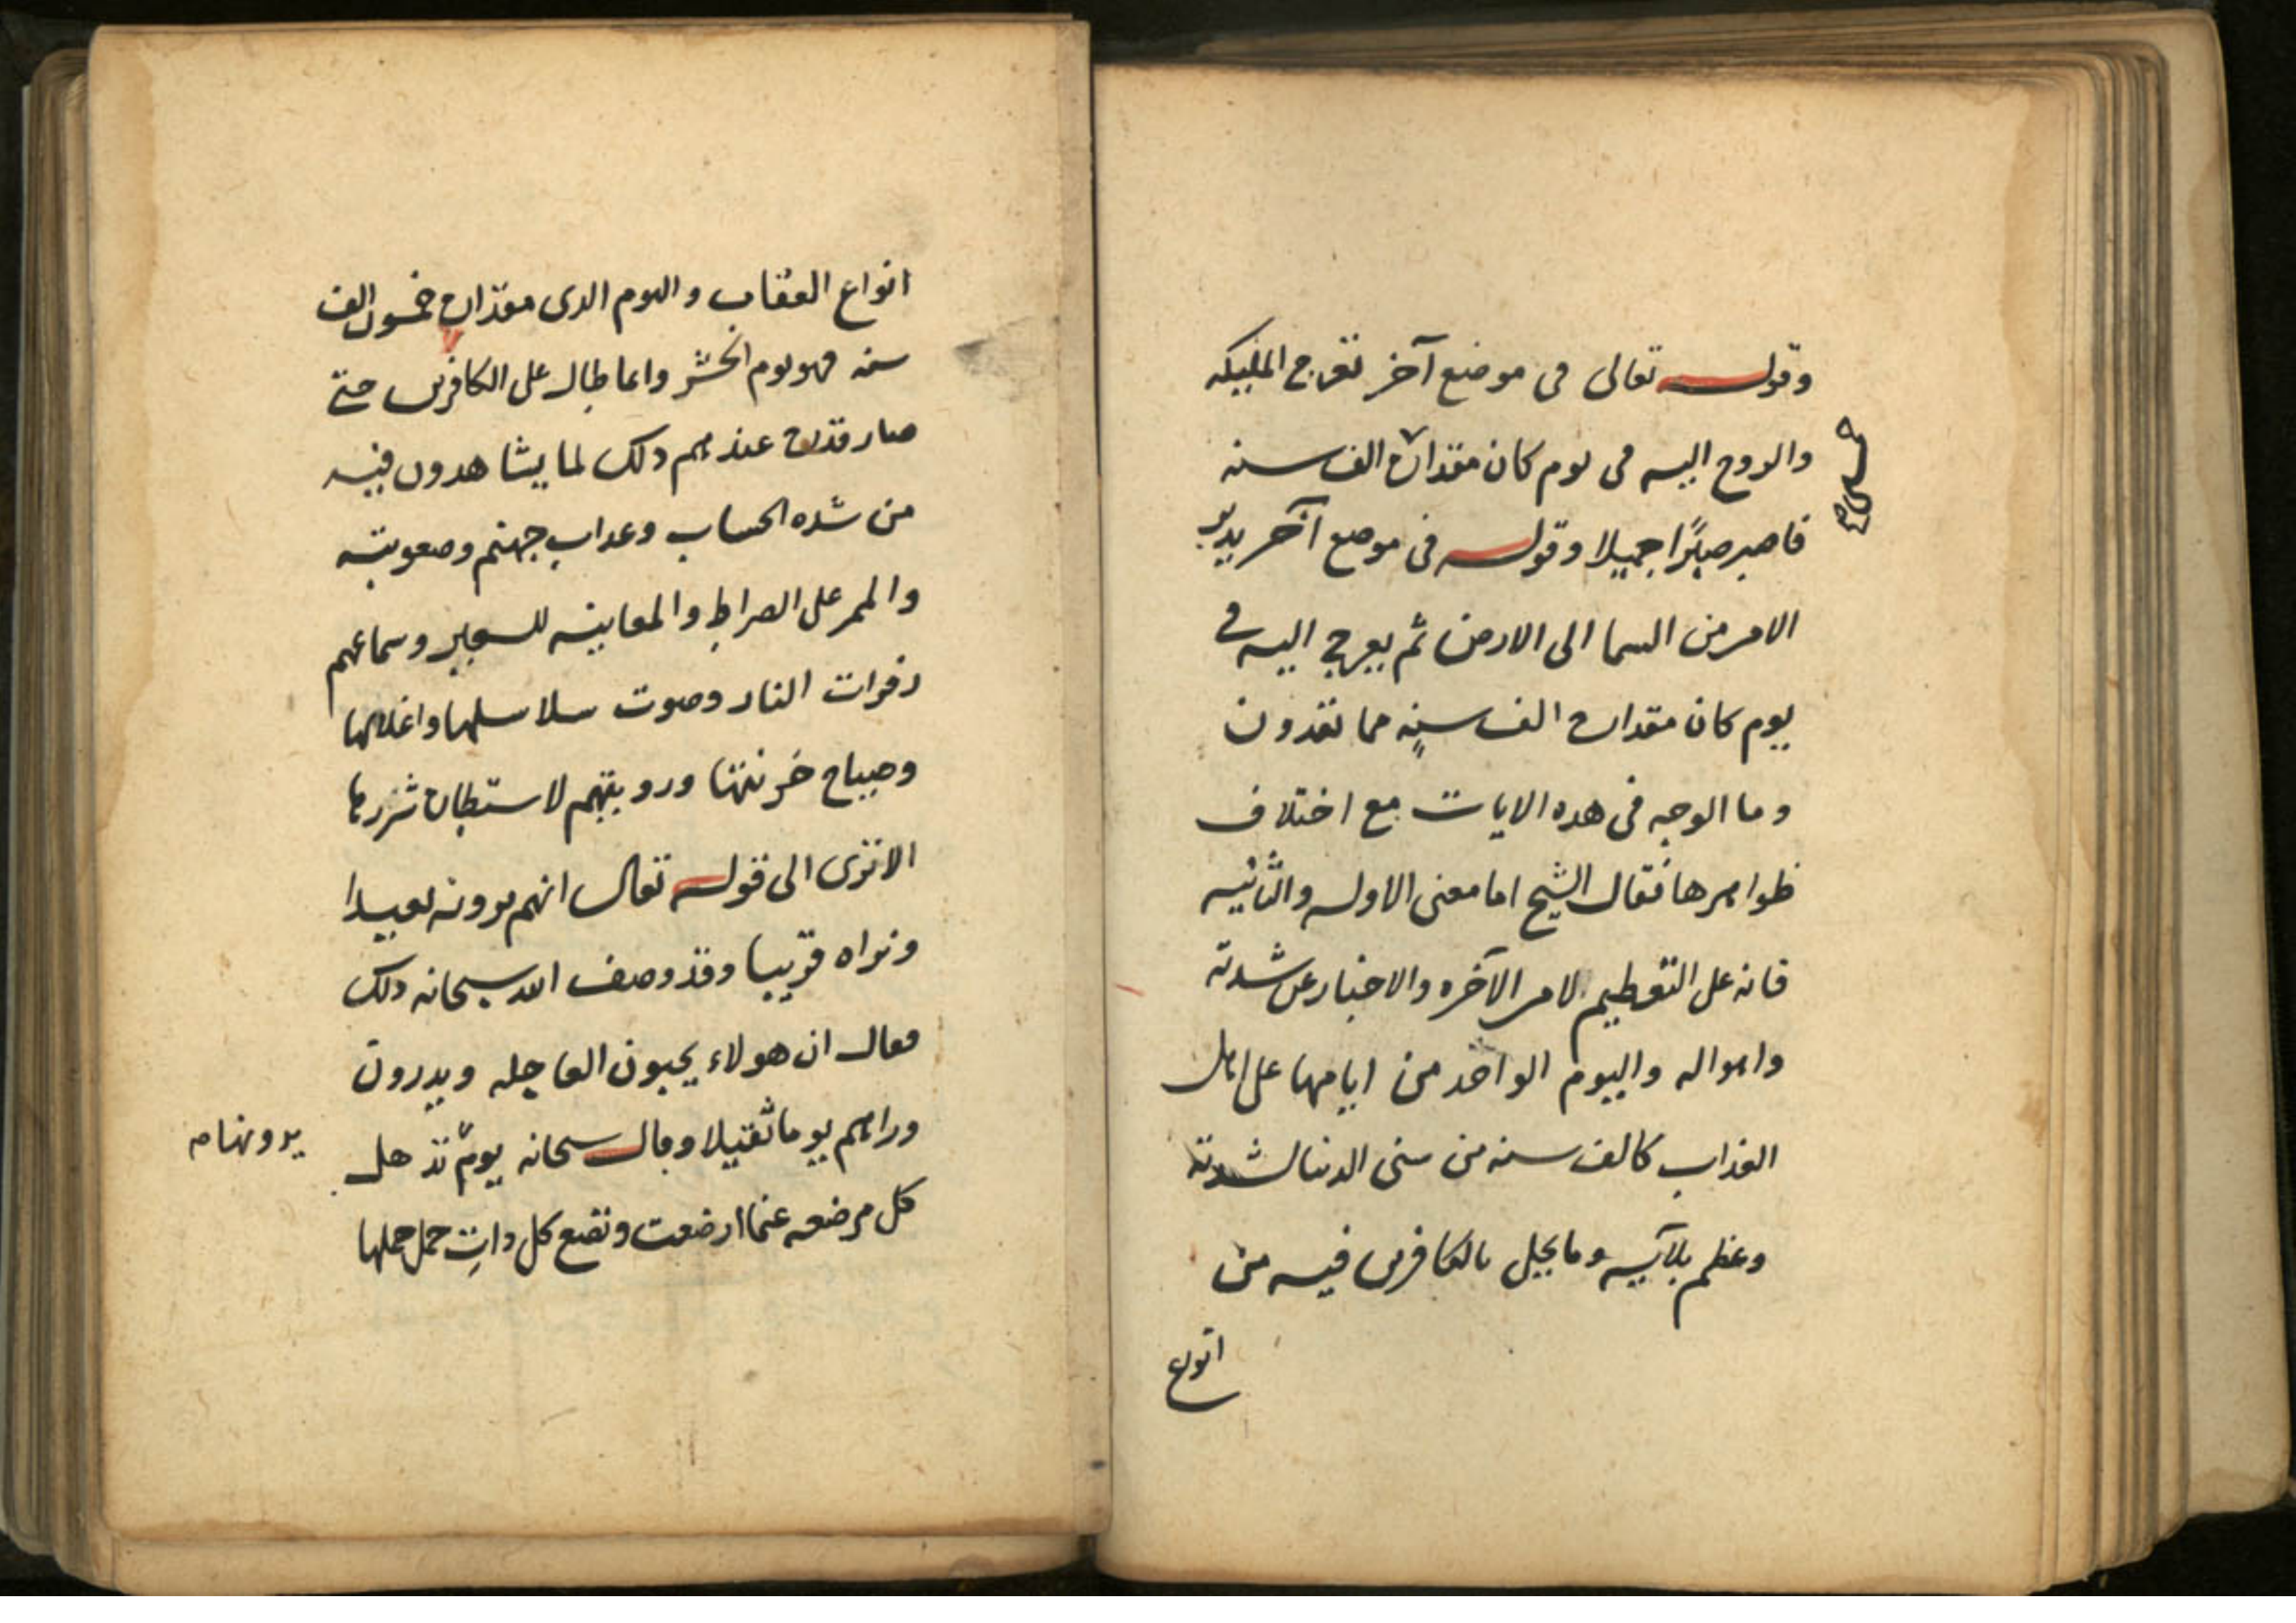 وقوله تعالى في موضع آخر تعرج المليكه
والروح اليه في يوم كان مقداره الف سنه
فاصبر صبرًا جميلا وقوله في موضع آخر يدبر
الامر من السما الى الارض ثم يعرج اليه في
يوم كان مقداره الف سنةٍ مما تعدون
وما الوجه في هده الايات مع اختلاف
ظواهرها فقال الشيخ اما معنى الاوله والثانيه
فانه على التعظيم لامر الآخره والاخبار عن شدته
واهواله واليوم الواحد من ايامها على اهل
العذاب كالف سنه من سنى الدنيا لشدته
وعظم بلآيه وما يحل بالكافرين فيه من
انواع
انواع العقاب واليوم الدى مقداره خمسون الف
سنه فهو يوم الحشر وانما طال على الكافرين حتى
صار قدره عندهم دلك لما يشاهدون فيه
من شده الحساب وعداب جهنم وصعوبته
والممر على الصراط والمعاينه للسعير وسماعهم
زفرات النار وصوت سلاسلها واغلالها
وصياح خزنتها ورويتهم لاستطاره شررها
الا ترى الى قوله تعالى انهم يرونه بعيدا
ونراه قريبا وقد وصف الله سبحانه دلك
فقال ان هولاء يحبون العاجله ويدرون
وراهم يوما ثقيلا وقال سبحانه يوم تذهل
يرونها صح
كل مرضعه عما ارضعت وتضع كل دات حمل حملها